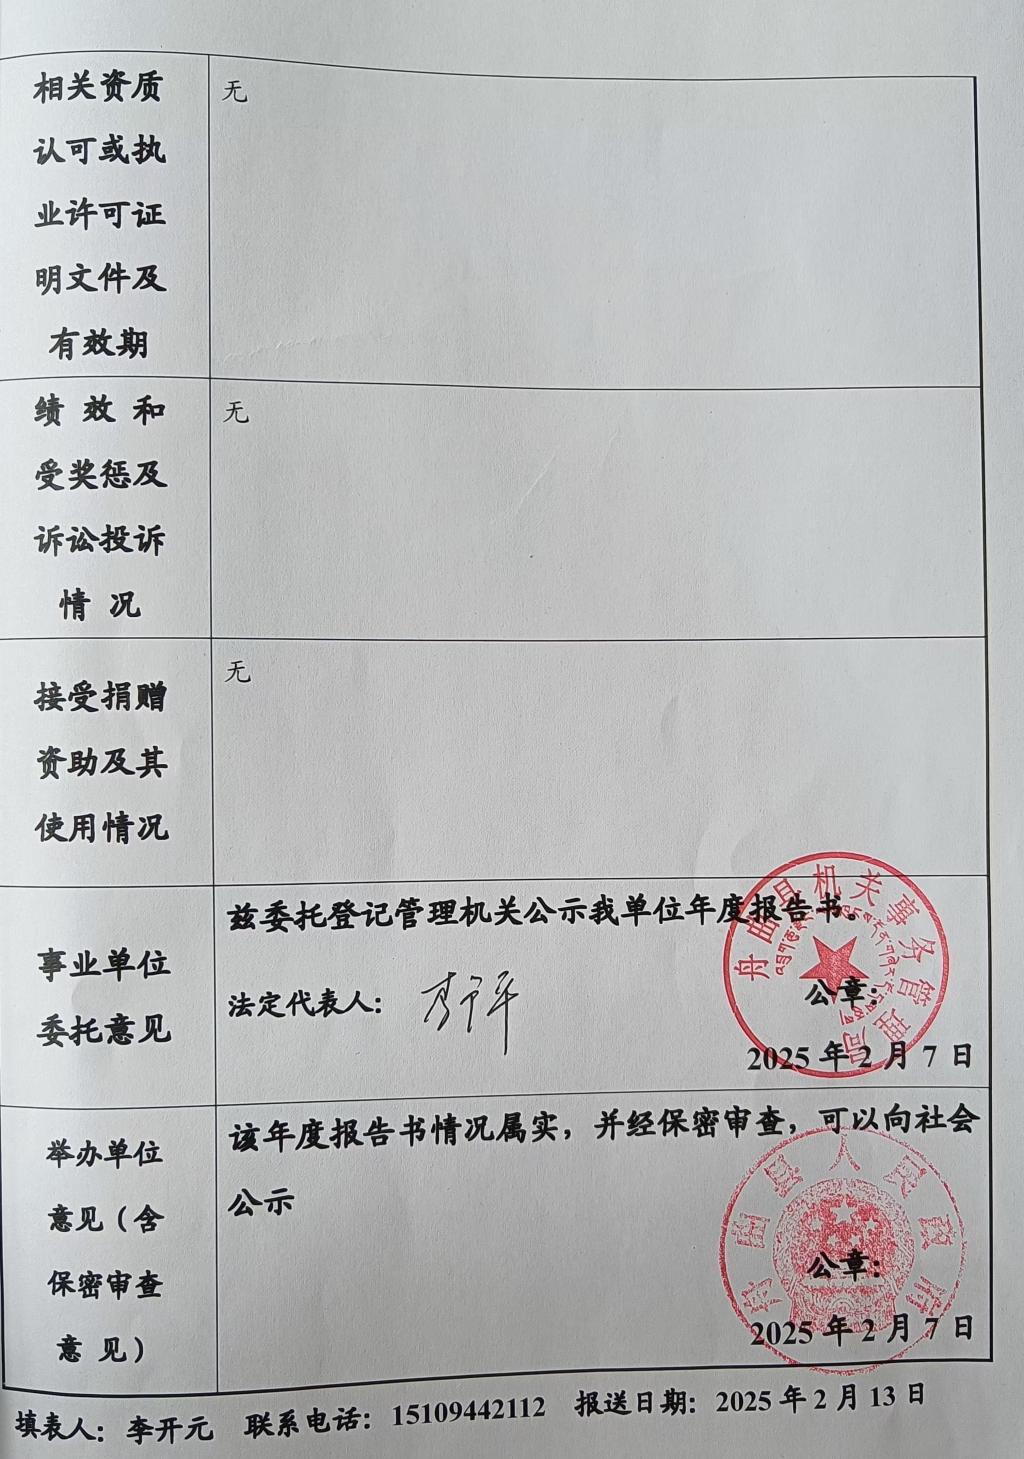 相关资质
认可或执
业许可证
明文件及
有效期
无
绩 效 和
受奖惩及
诉讼投诉
情 况
无
接受捐赠
资助及其
使用情况
无
事业单位
委托意见
兹委托登记管理机关公示我单位年度报告书。
法定代表人：
公章：
2025 年 2 月 7 日
舟曲县机关事务管理局
举办单位
意见（含
保密审查
意 见）
该年度报告书情况属实，并经保密审查，可以向社会
公示
公章：
2025 年 2 月 7 日
舟曲县人民政府
填表人：李开元 联系电话：15109442112 报送日期：2025 年 2 月 13 日